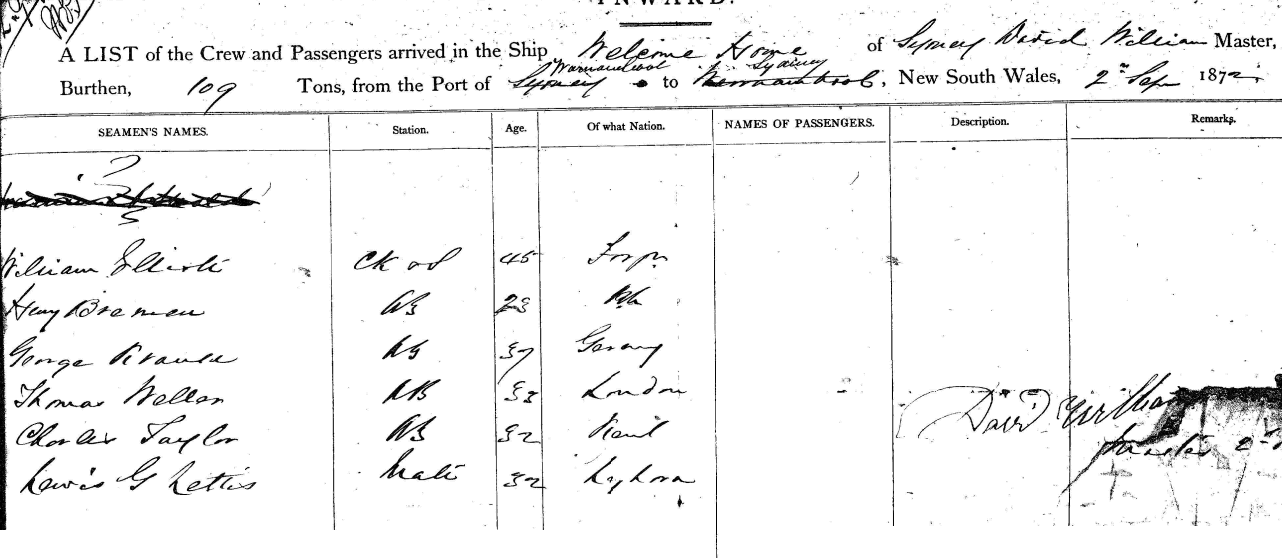 INWARD.
A LIST of the Crew and Passengers arrived in the Ship Welcome Home of Sydney David William Master,
Warnambool Sydney
Burthen, 109 Tons, from the Port of Sydney to Warnambool, New South Wales, 2nd Sep 1872
SEAMEN'S NAMES. Station. Age. Of what Nation. NAMES OF PASSENGERS. Description. Remarks.
William Elliott Ck 45
Henry Breman AB 23
George AB 37 Gerany
Thomas Wellan AB 33 London
Charles Taylor AB 32
Lewis G Lettis Mate 32
David William
Master 2nd